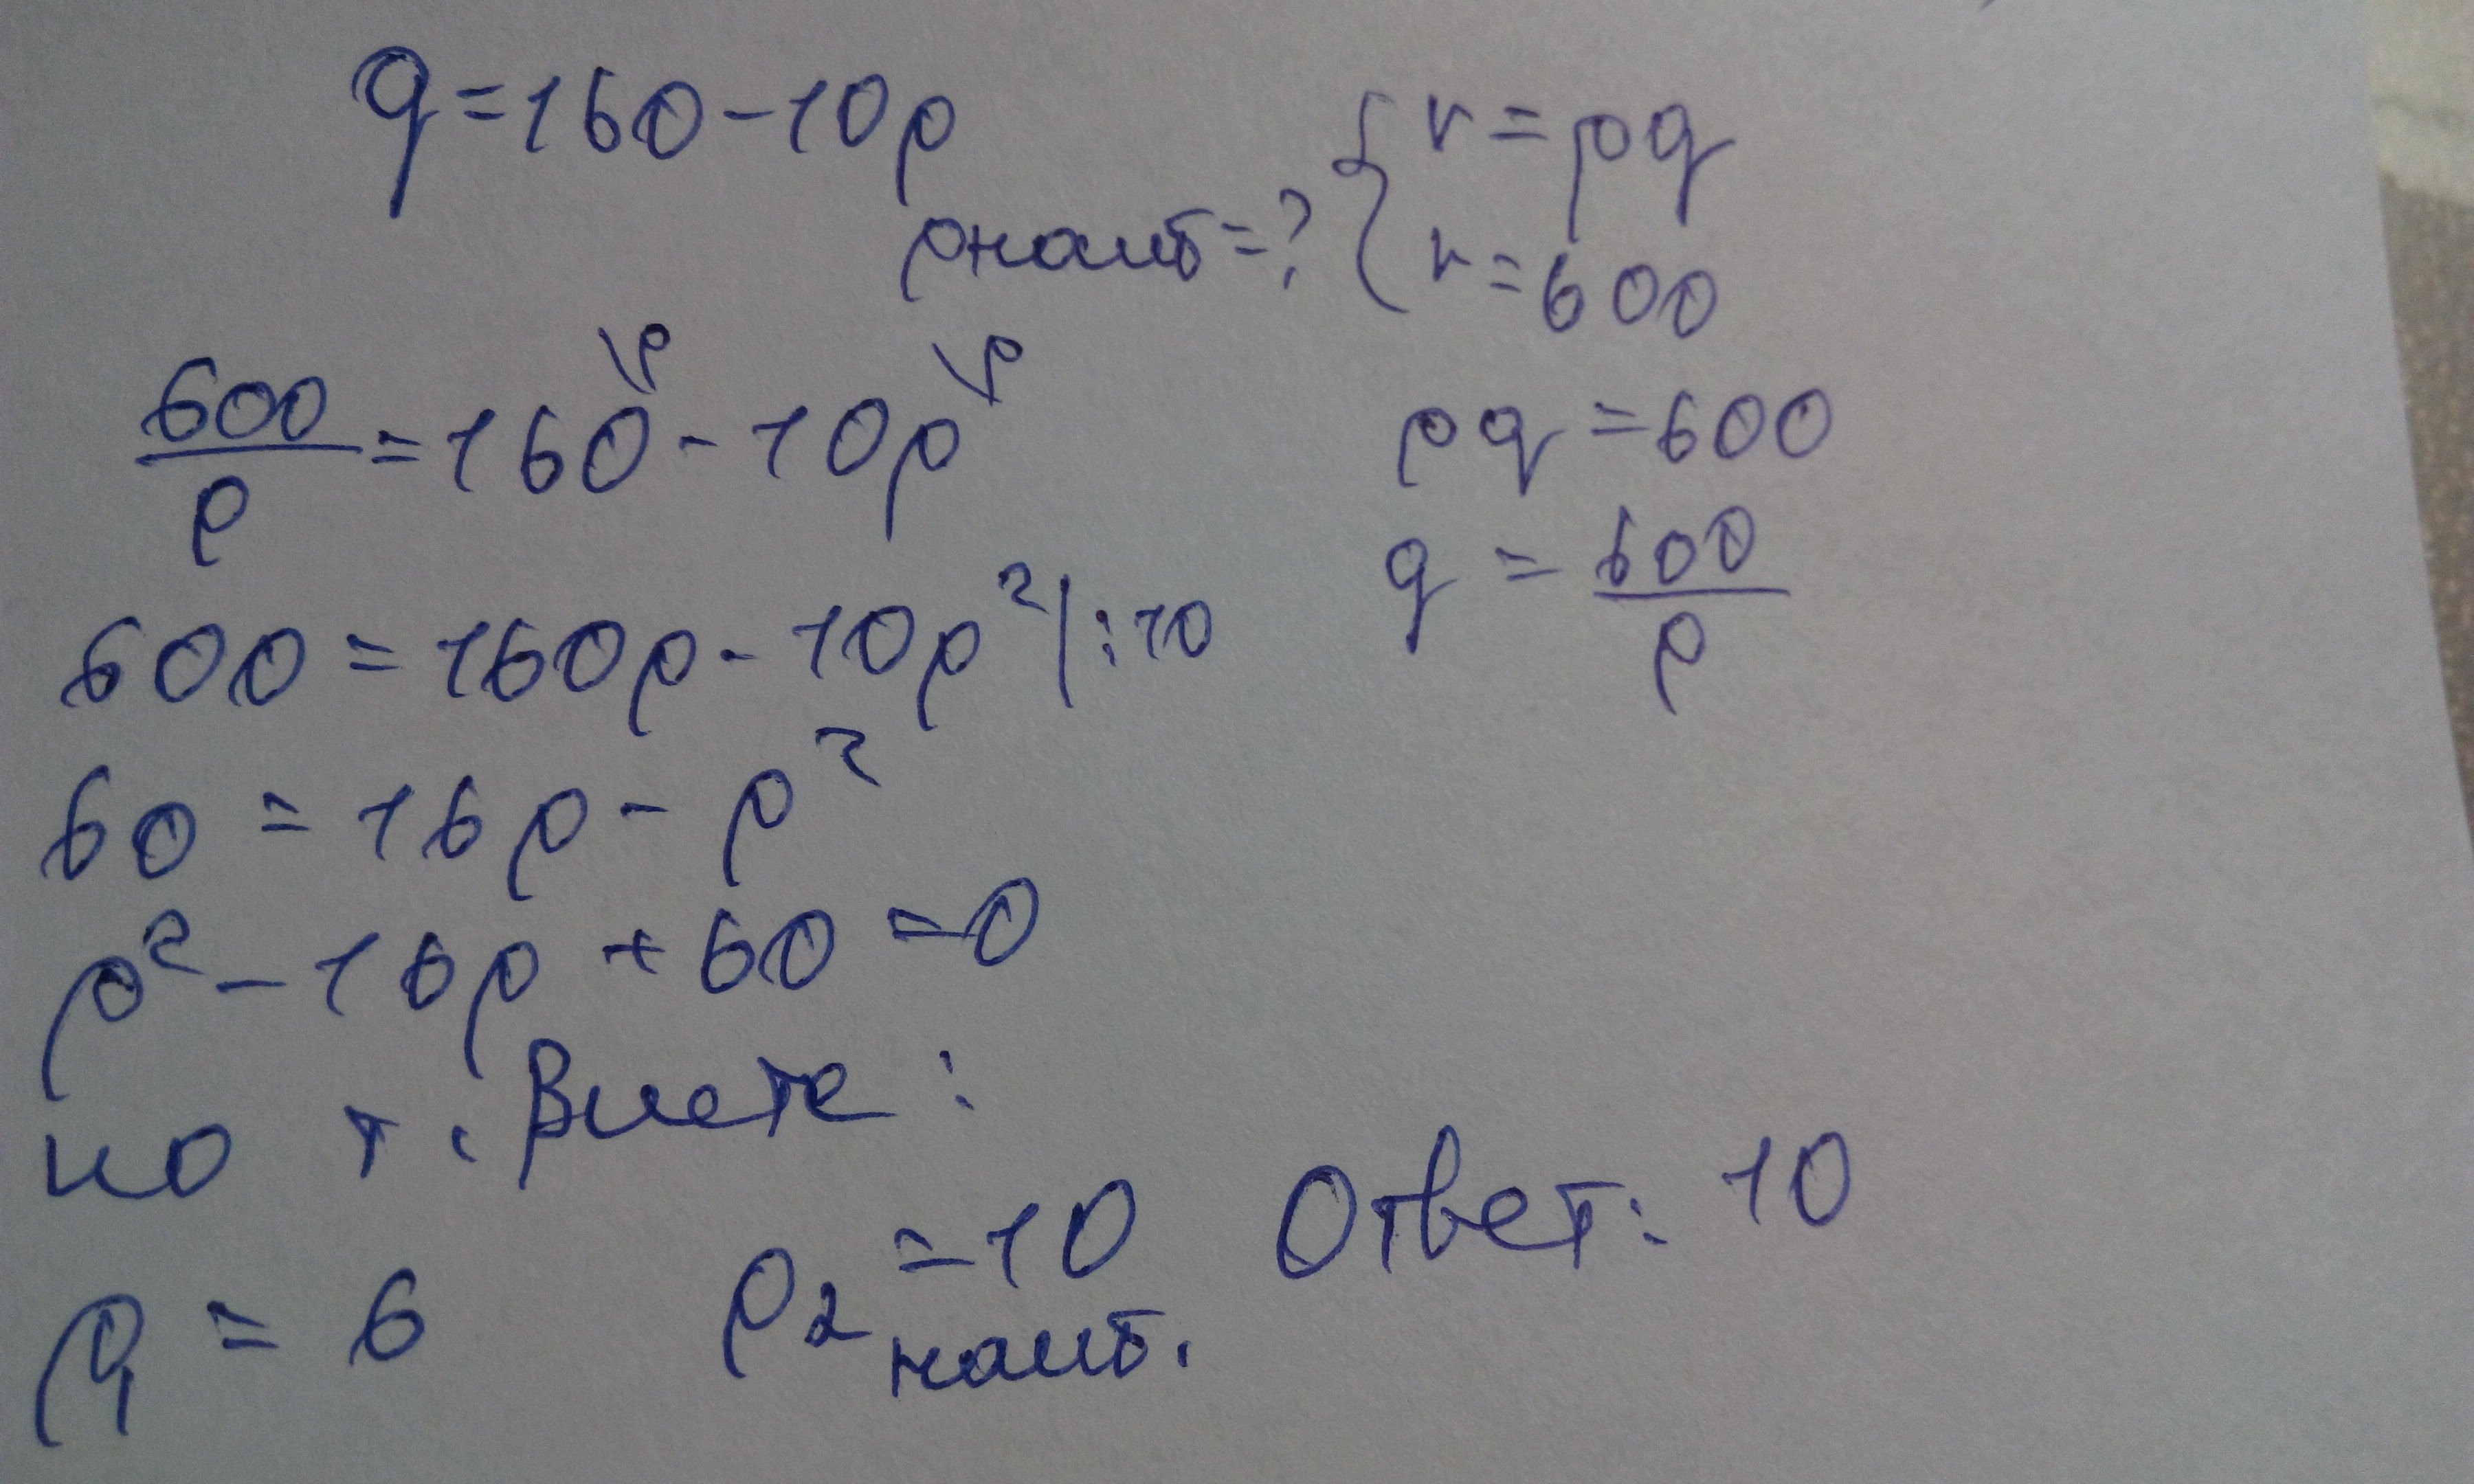 q = 160 - 10p
pнаиб = ?
{ r = pq
r = 600
pq = 600
q = 600/p
600/p = 160\p - 10p\p
600 = 160p - 10p² | : 10
60 = 16p - p²
p² - 16p + 60 = 0
по т. Виета :
p₁ = 6
p₂ = 10
наиб.
Ответ: 10